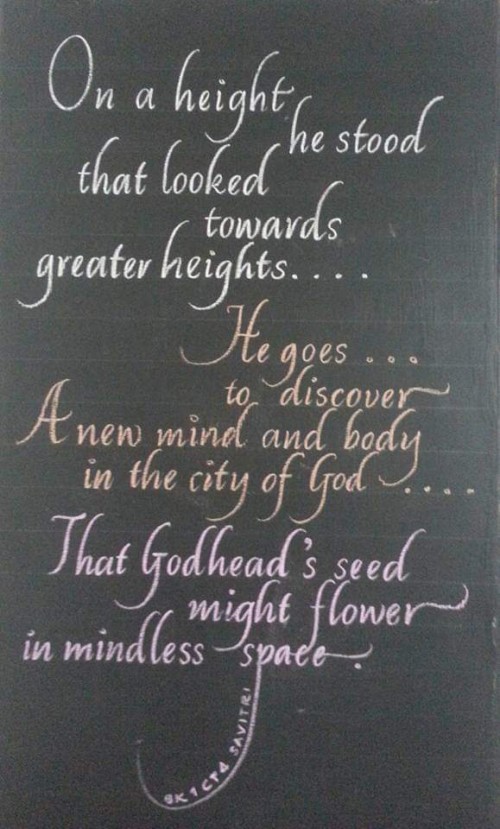 On a height
he stood
that looked
towards
greater heights....
He goes ...
to discover
A new mind and body
in the city of God ....
That Godhead's seed
might flower
in mindless space.
BK 1 CT4 SAVITRI